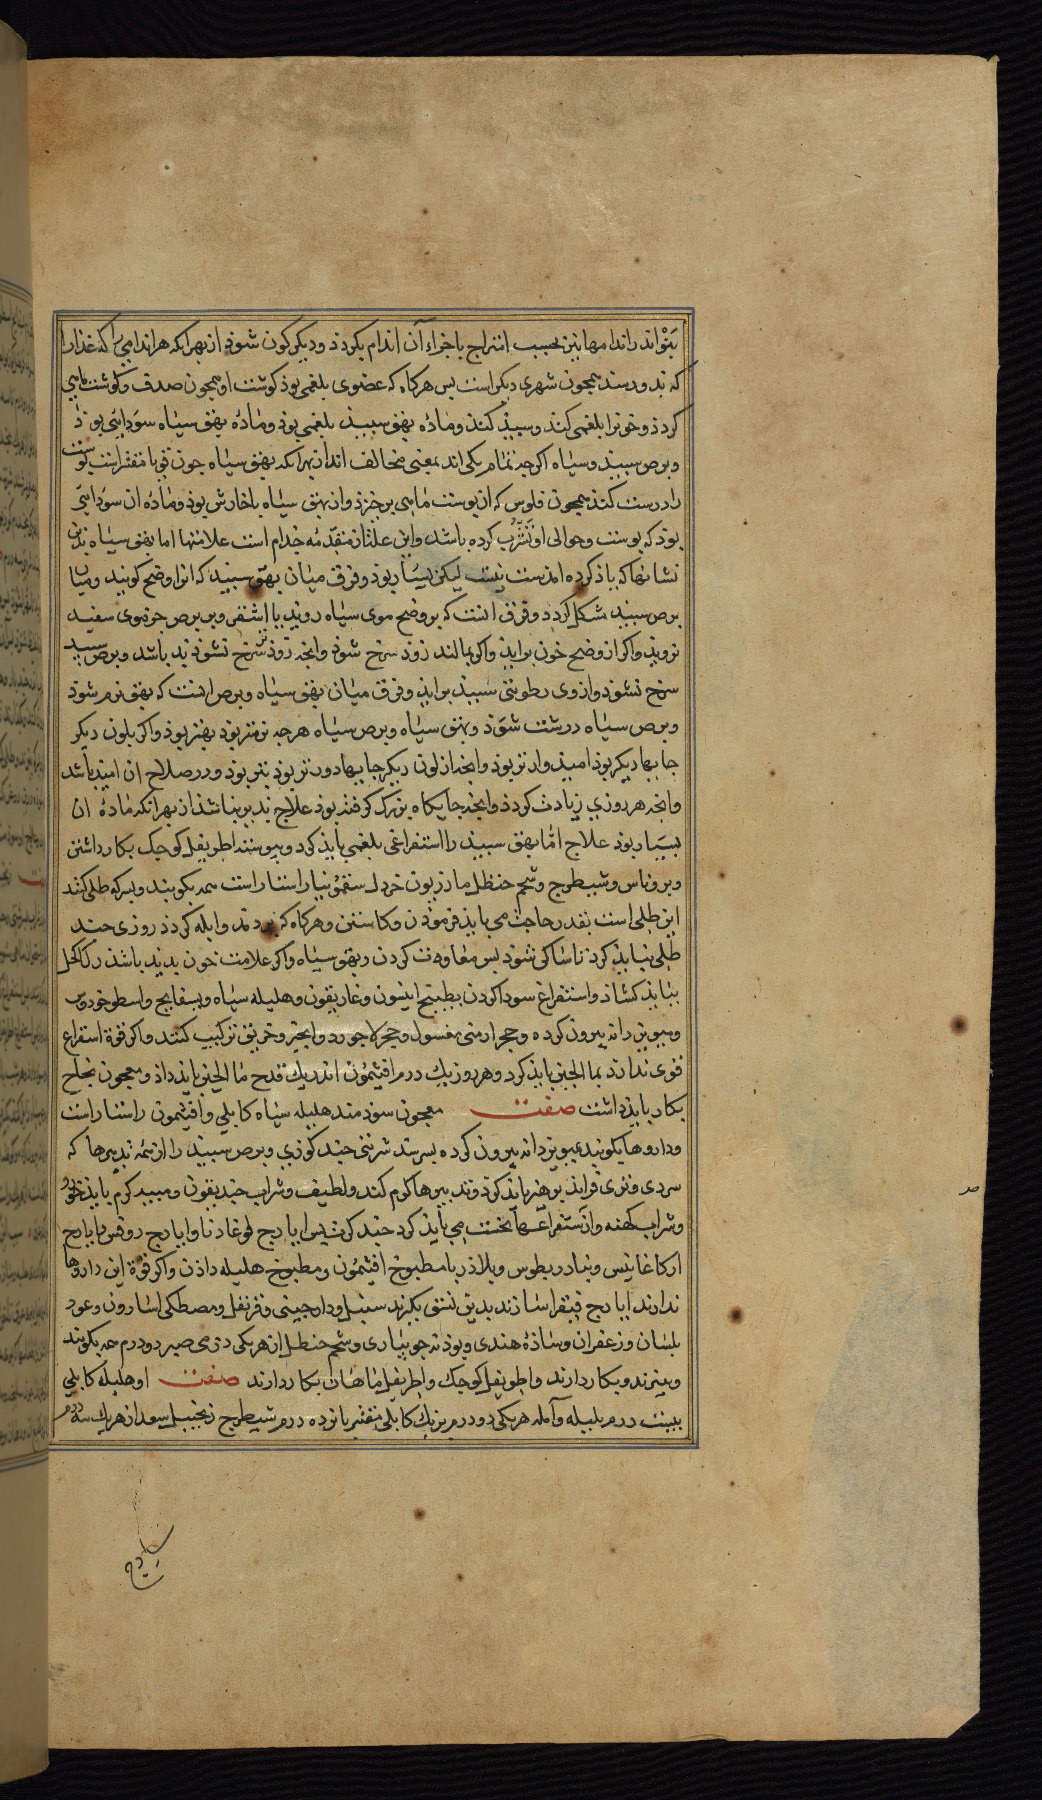 بتواند راندامها نیز بحسب امتزاج باجزاء آن اندام بکردد و دیکرکون شود از بهر انکه هر اندامی را که غذا را
که بدو رسد همچون شهری دیکر است پس هرکاه که عضوی بلغمی بوذ کوشت او همچون صدف و کوشت ماهی
کردد و خونرا بلغمی کند و سپید کند و ماده بهق سپید بلغمی بوذ و ماده بهق سیاه سودایی بوذ
و برص سپید و سیاه اکرچه بنام یکی اند بمعنی مخالف اند از بهر انکه بهق سیاه چون قوبا متقشر است پوست
را درست کند همچون فلوس که از پوست ماهی برخیزذ و ان بهق سیاه با خارش بوذ و ماده ان سودایی
بوذ که پوست و حوالی او تشرب کرده باشد و این علت از مقدمه جذام است علامتها اما بهق سیاه بدین
نشانها که یاذ کرده امدست نیست لیکن بسیار بوذ و فرق میان بهق سپید که انرا وضح کویند و میان
برص سپید مشکل کردد و فرق انست که بر وضح موی سیاه روید یا اشقر و بر برص جز موی سفید
نروید و اکر از وضح خون برایذ و اکر بمالند زوذ سرخ شوذ و انچه زوذ سرخ نشوذ بد باشد و برص سپید
سرخ نشوذ و از وی رطوبتی سپید برایذ و فرق میان بهق سیاه و برص انست که بهق نرم شوذ
و برص سیاه درشت شوذ و بهق سیاه و برص سیاه هرچه نرمتر بوذ بهتر بوذ و اکر بلون دیکر
جایها دیکر بوذ امیدوارتر بوذ و انچه از لون دیکر جایها دورتر بوذ بتر بوذ و در صلاح ان امید باشد
و انچه هر روزی زیادت کردد و انچه جایکاه بزرک کرفته بوذ علاج پذیر نباشذ از بهر انکه ماده ان
بسیار بوذ علاج اما بهق سپید را استفراغی بلغمی بایذ کرد و پیوسته اطریفل کوچک بکار داشتن
و بروناس و شیطرج و شحم حنظل مازریون خردل سقمونیا راستا راست همه بکوبند و بسرکه طلی کنند
این طلی است بقدر حاجت می بایذ فرمودن و کاستن و هرکاه که بردمد و ابله کردذ روزی چند
طلی نبایذ کرد تا ساکن شوذ پس معاودت کردن و بهق سیاه و اکر علامت خون پدید باشذ رک اکحل
بباید کشاذ و استفراغ سودا کردن بطبیخ ایسون و غاریقون و هلیله سیاه و بسفایج و اسطوخودوس
و میویز دانه بیرون کرده و حجر ارمنی مغسول و حجر لاجورد و انجیر و خربق ترکیب کنند و اکر قوة استفراغ
قوی ندارند بما الجبن بایذ کرد و هر روز یک درم افتیمون اندر یک قدح ما الجبن بایذ داذ و معجون نجاح
بکار بایذ داشت صفت معجون سوذمند هلیله سیاه کابلی و افتیمون راستا راست
و داروها بکوبند بمیویز دانه بیرون کرده بسرشد شربتی چند کوزی و برص سپید را از همه تدبیرها که
سردی و تری فزایذ پرهیز بایذ کرد و تدبیرها کرم کنند و لطیف و شراب خندیقون و میبه کرم بایذ خورد
و شراب کهنه و از استفراغها نخست می بایذ کرد چند کرت پس ایارج لوغاذیا و ایارج روفس یا ایارج
ارکاغانیس و تیادریطوس و بلاذر با مطبوخ افتیمون و مطبوخ هلیله داذن و اکر قوة این داروها
ندارند ایارج فیقرا سازند بدین نسق بکیرند سنبل و دارچینی و قرنفل و مصطکی اسارون و عود
بلسان و زعفران و ساذه هندی و پوذنه جویباری و شحم حنظل از هر یکی درمی صبر دو درم همه بکوبند
و بپزند و بکار دارند و اطریفل کوچک و اطریفل ماهان بکار دارند صفت او هلیله کابلی
بیست درم بلیله و آمله هر یکی ده درم برنک کابلی مقشر پانزده درم شیطرج زنجبیل سعد از هر یک سه درم
ساذج
صر